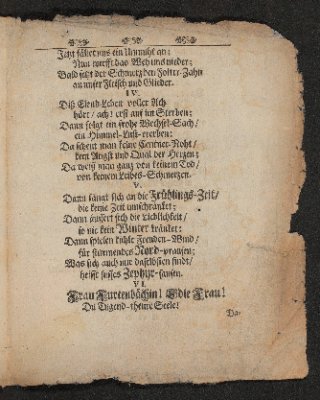 Jetzt fället uns ein Unmuht an;
Nun wirfft das Weh uns nieder;
Bald setzt der Schmertz den Folter-Zahn
an unser Fleisch und Glieder.
IV.
Diß Elend-Leben voller Ach
hört / ach! erst auf im Sterben;
Dann folgt ein frohe Wechsel-Sach /
ein Himmel-Lust-ererben:
Da scheut man keine Centner-Noht /
kein Angst und Qual der Hertzen;
Da weiß man gantz von keinem Tod /
von keinem Leibes-Schmertzen.
V.
Dann fängt sich an die Frühlings-Zeit /
die keine Zeit umschränket;
Dann äussert sich die Lieblichkeit /
so nie kein Winter kränket;
Dann spielen kühle Freuden-Wind /
für stürmendes Nord-prausen;
Was sich auch nur daselbsten findt /
heisst süsses Zephyr-sausen.
VI.
Frau Furtenbächin! Edle Frau!
Du Tugend-theure Seele!
Da-